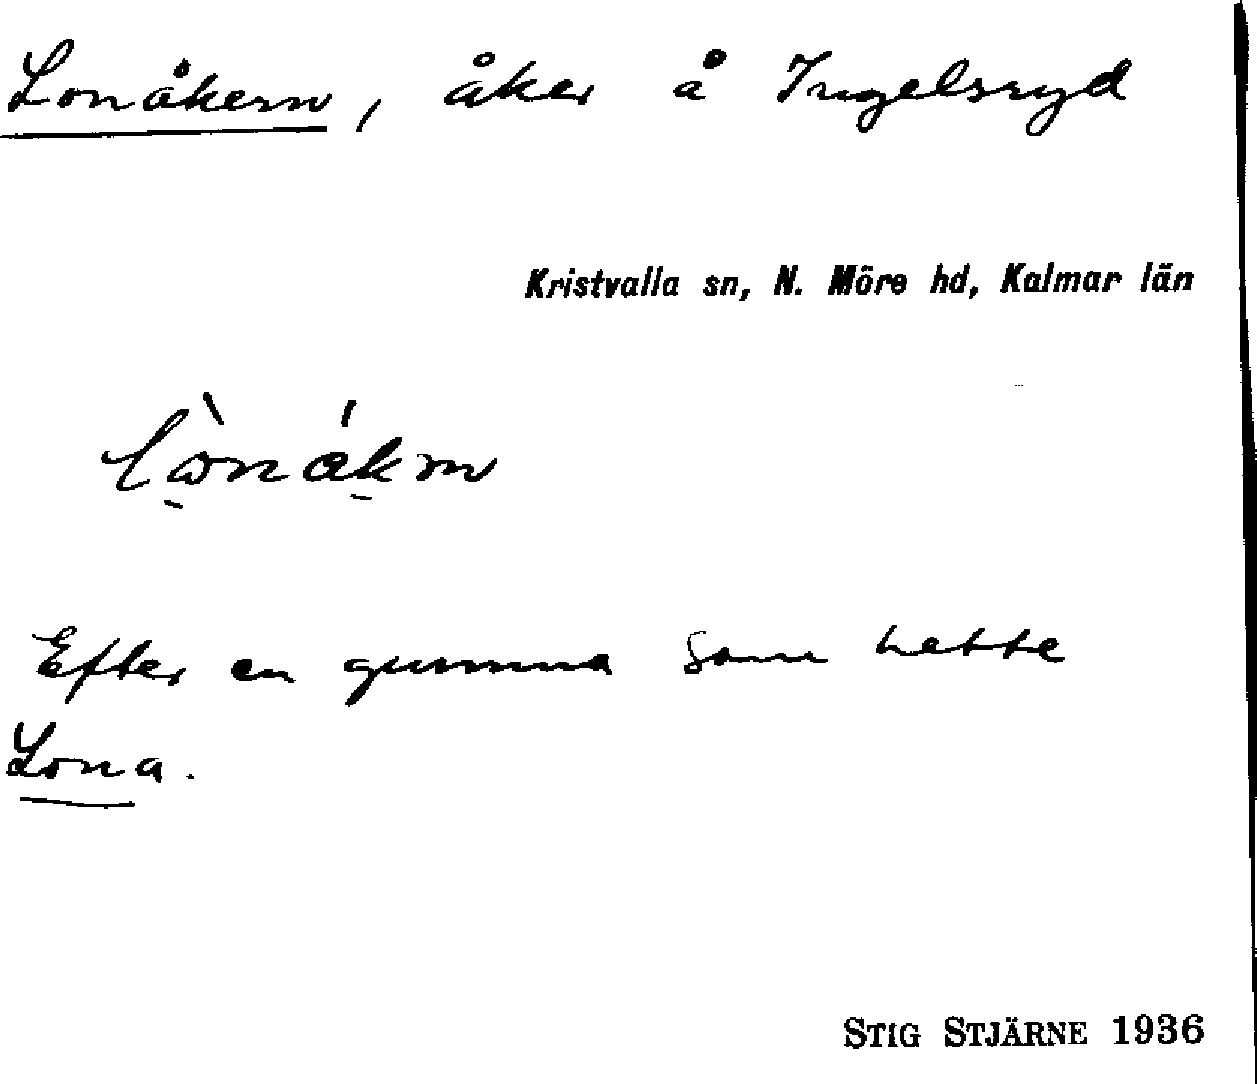 Lonåkern, åker å Ingelsryd
Kristvalla sn, N. Möre hd, Kalmar län
Efter en gumma som hette
Lona.
STIG STJÄRNE 1936